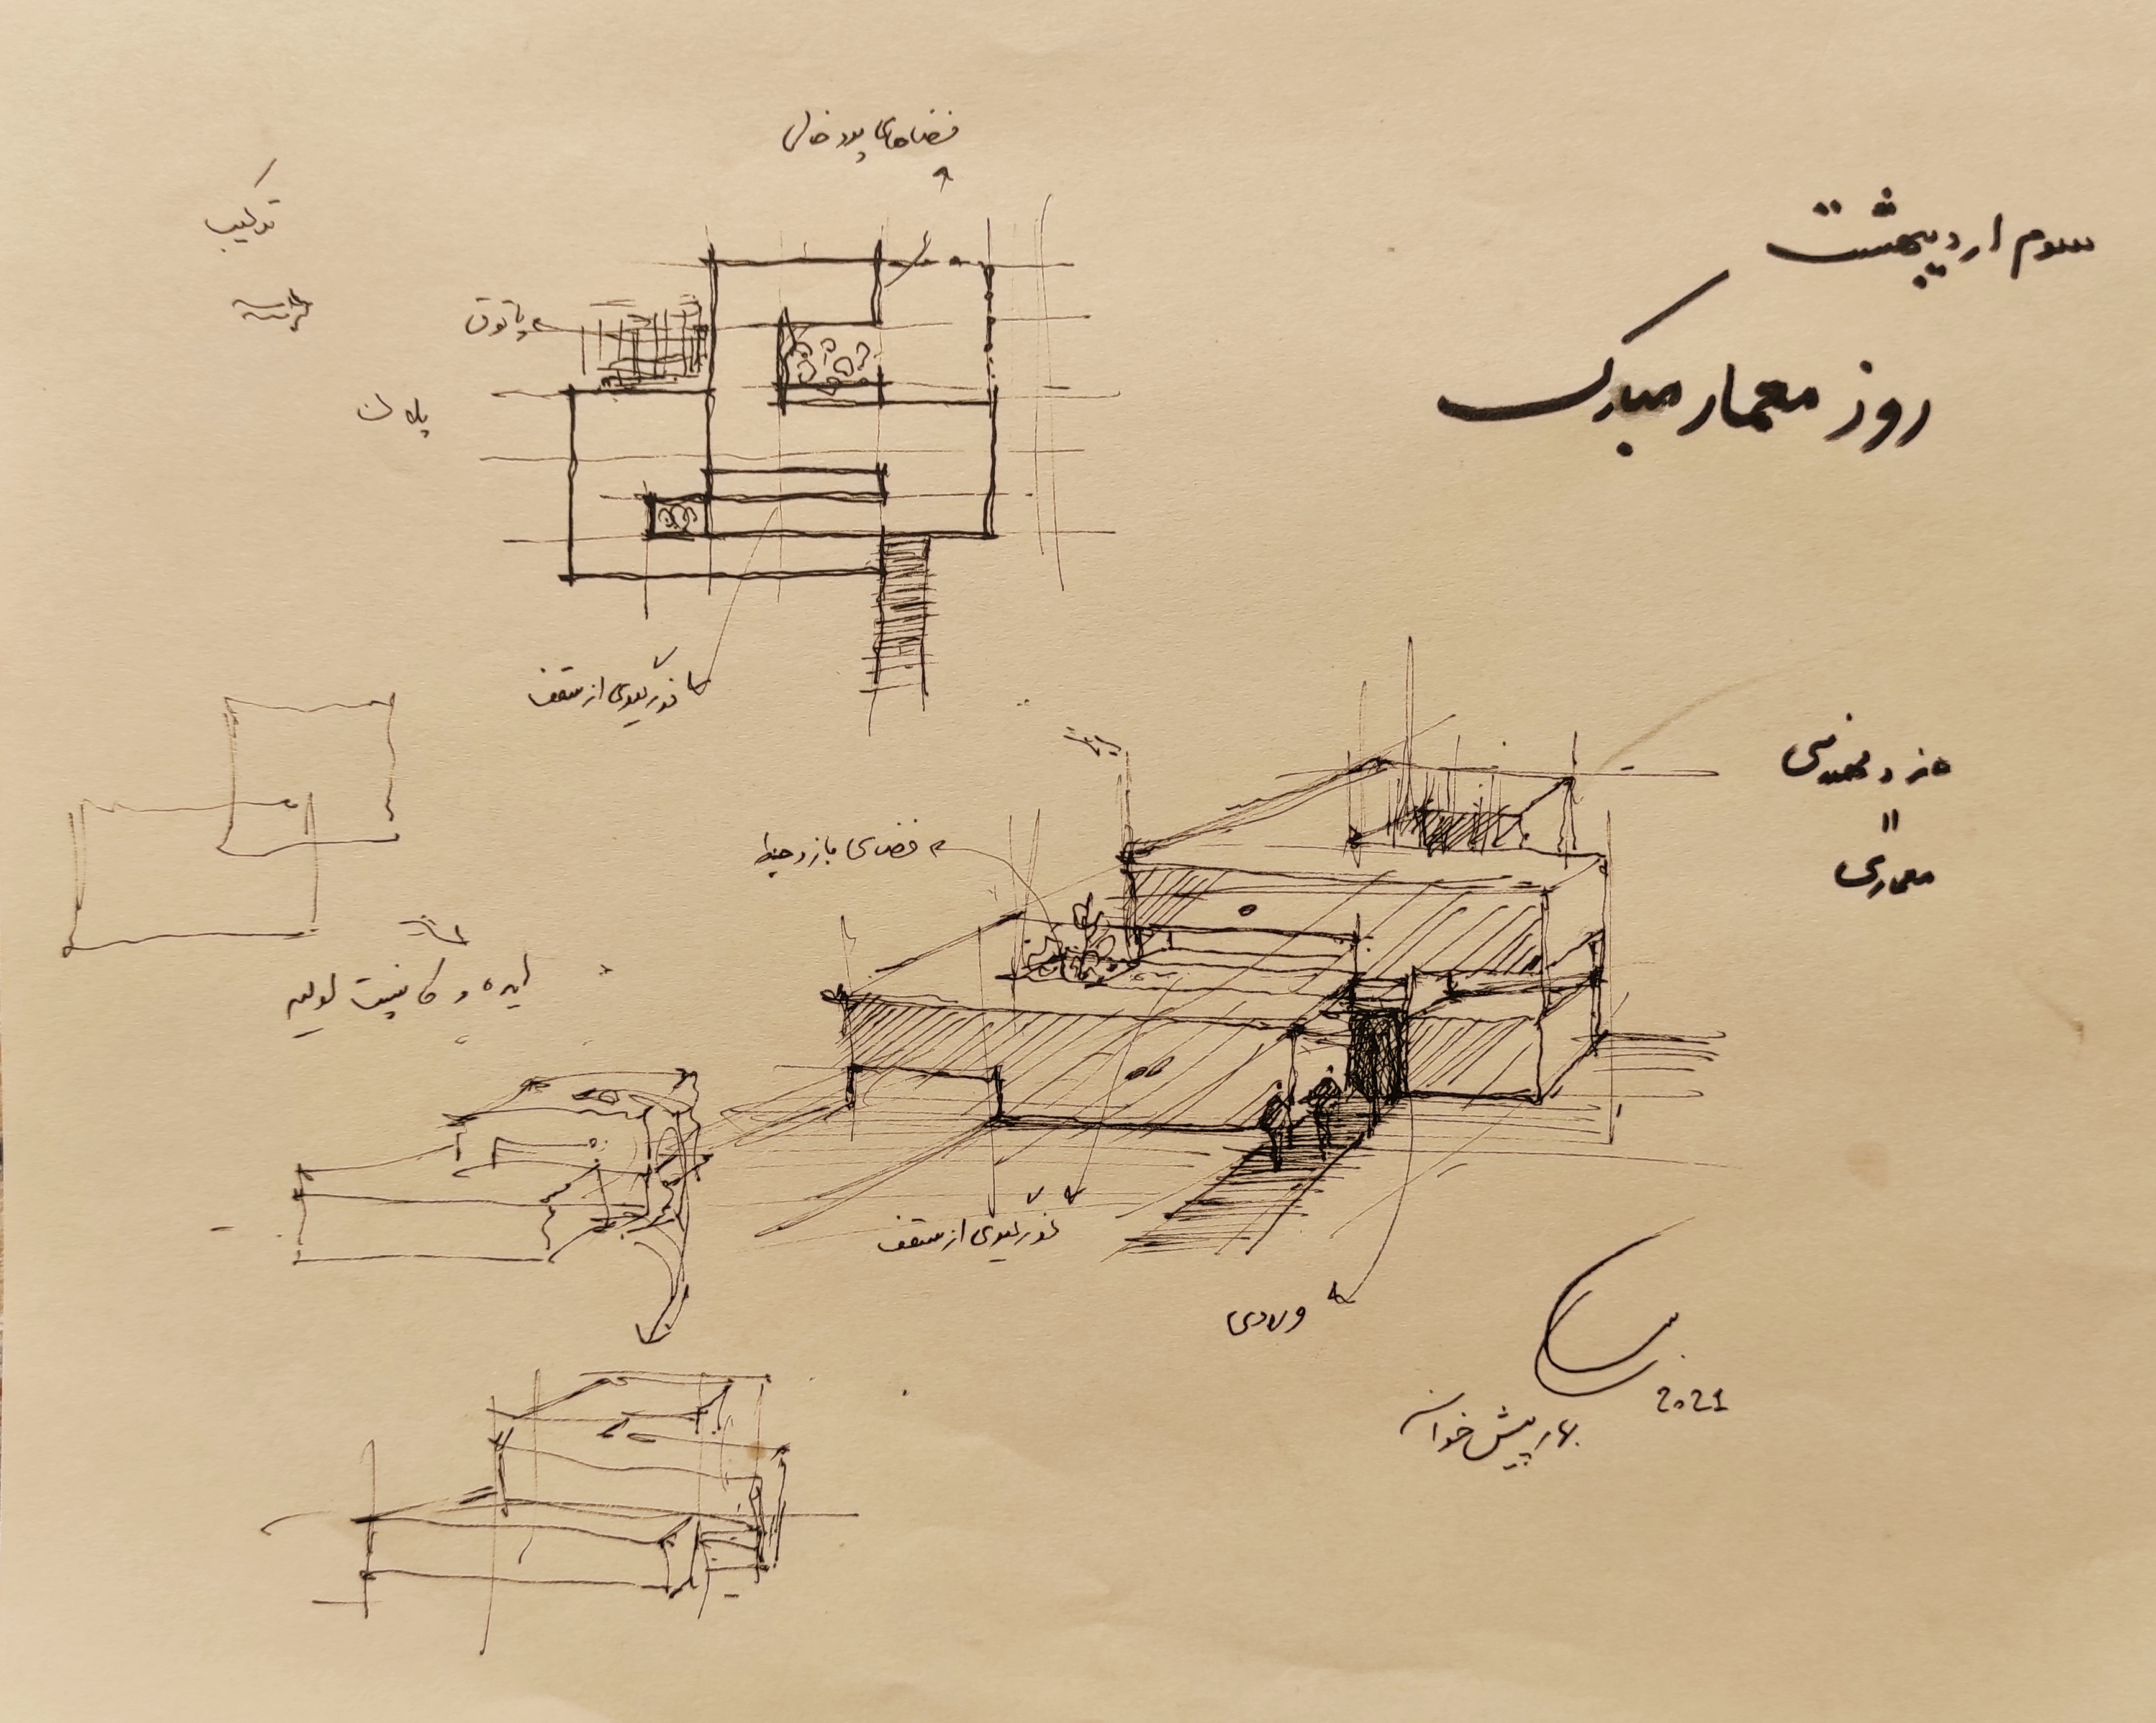 سوم اردیبهشت
روز معمار مبارک
فضاهای پر و خالی
ترکیب
پاتوق
پلان
نورگیری از سقف
هنر و مهندسی
=
معماری
فضای باز و حیاط
ایده و کانسپت اولیه
نورگیری از سقف
ورودی
2021
بهار پیش خوان